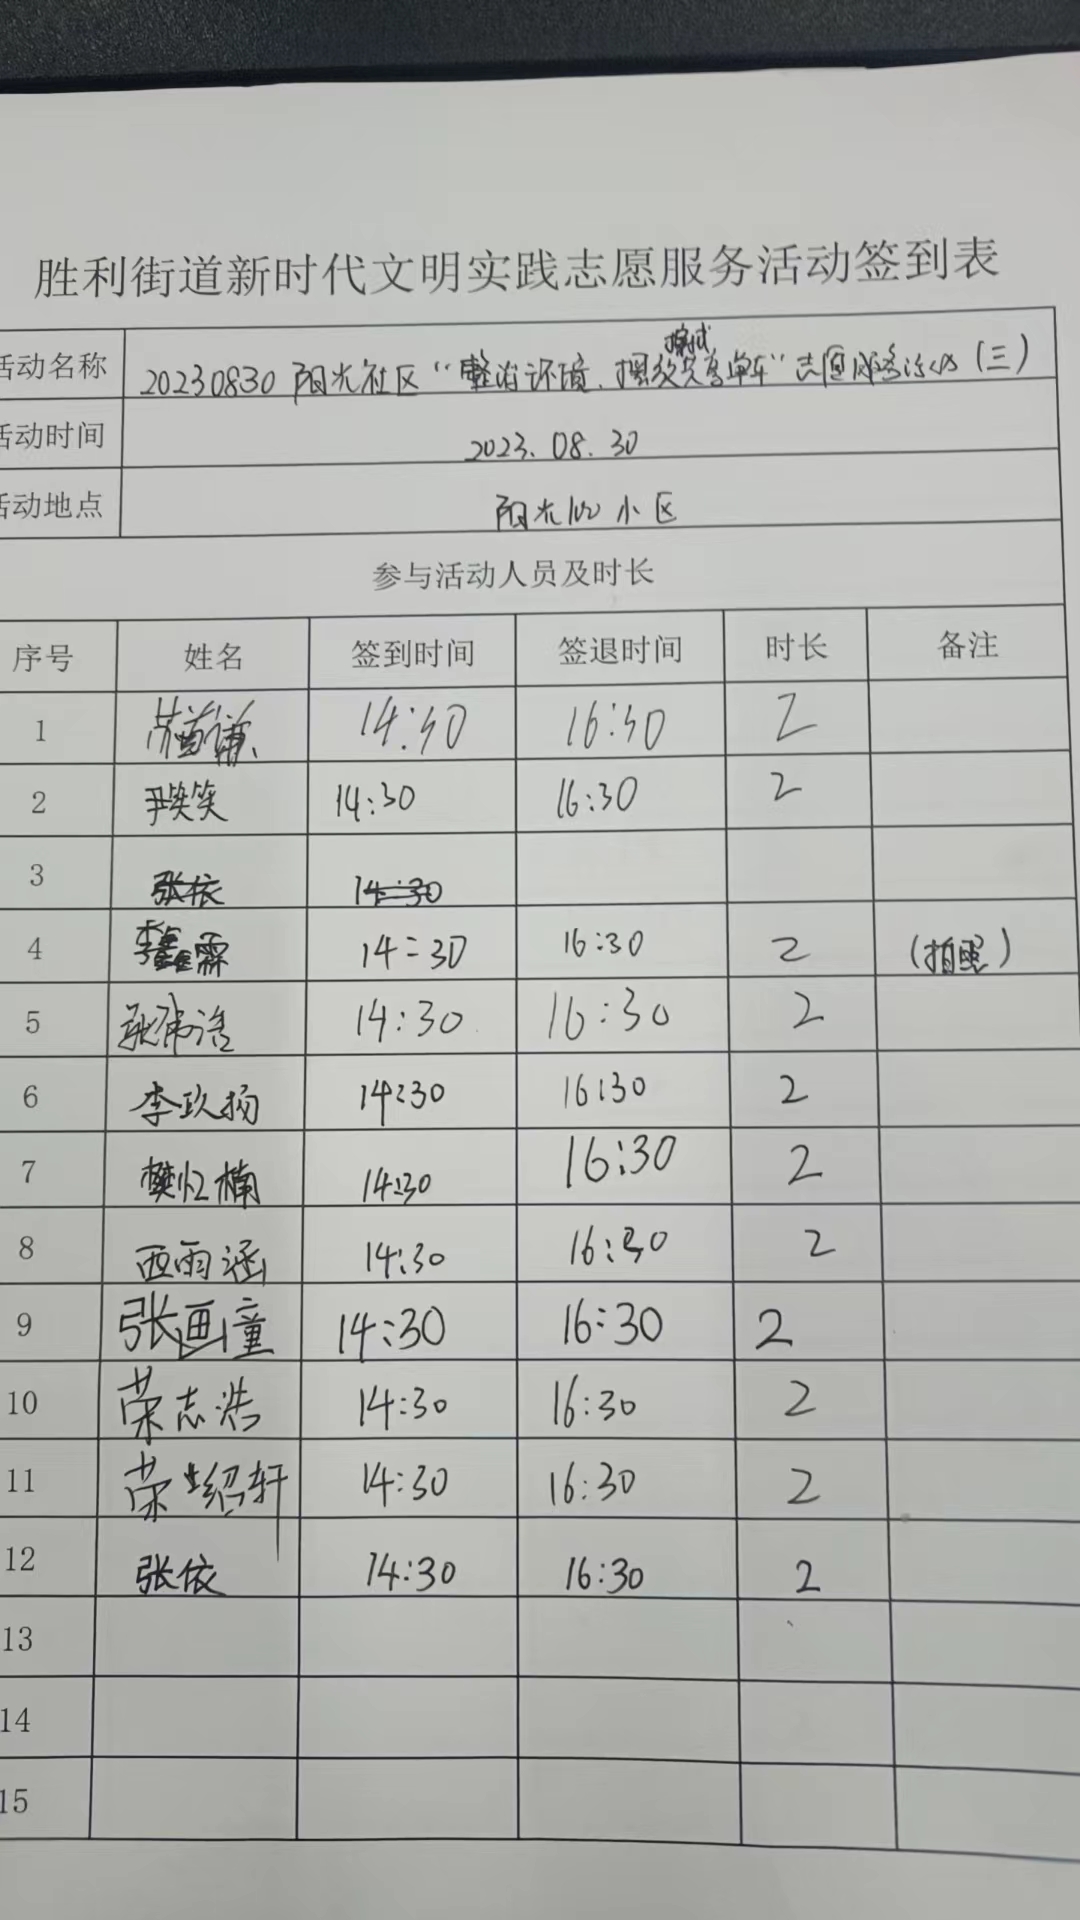 胜利街道新时代文明实践志愿服务活动签到表
活动名称 20230830 阳光社区“整治环境、摆放共享单车”志愿服务活动(三)
活动时间 2023.08.30
活动地点 阳光100小区
参与活动人员及时长
序号 姓名 签到时间 签退时间 时长 备注
1 14:30 16:30 2
2 尹笑笑 14:30 16:30 2
3 张依 14:30
4 李鑫霖 14:30 16:30 2 (拍照)
5 耿浩 14:30 16:30 2
6 李玖扬 14:30 16:30 2
7 樊忆楠 14:30 16:30 2
8 西雨涵 14:30 16:30 2
9 张画童 14:30 16:30 2
10 荣志浩 14:30 16:30 2
11 荣绍轩 14:30 16:30 2
12 张依 14:30 16:30 2
13
14
15